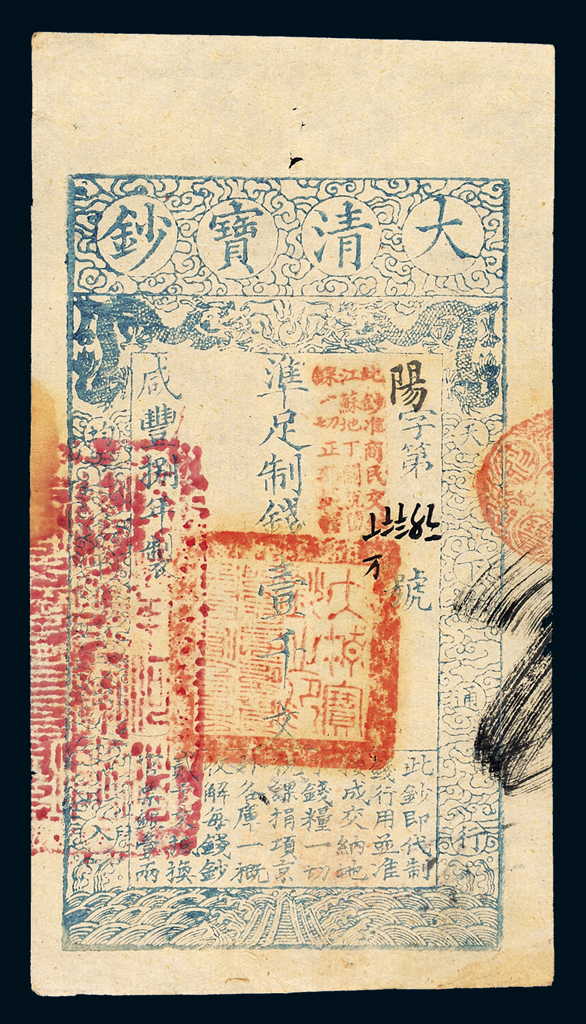 大清寶鈔
天下通行
陽字第號
此鈔准商民交
江蘇地丁關稅
課一切正
準足制錢壹千文
大清寶鈔之印
咸豐捌年製
此鈔即代制
錢行用並准
按成交納地
丁錢糧一切
稅課捐項京
外各庫一概
收解每錢鈔
貳千文抵換
官票銀壹兩
出入